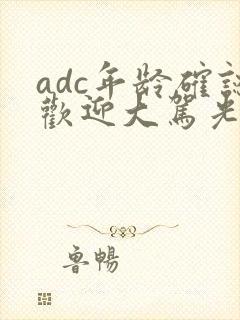 adc年龄確認
歡迎大駕光
魯暢